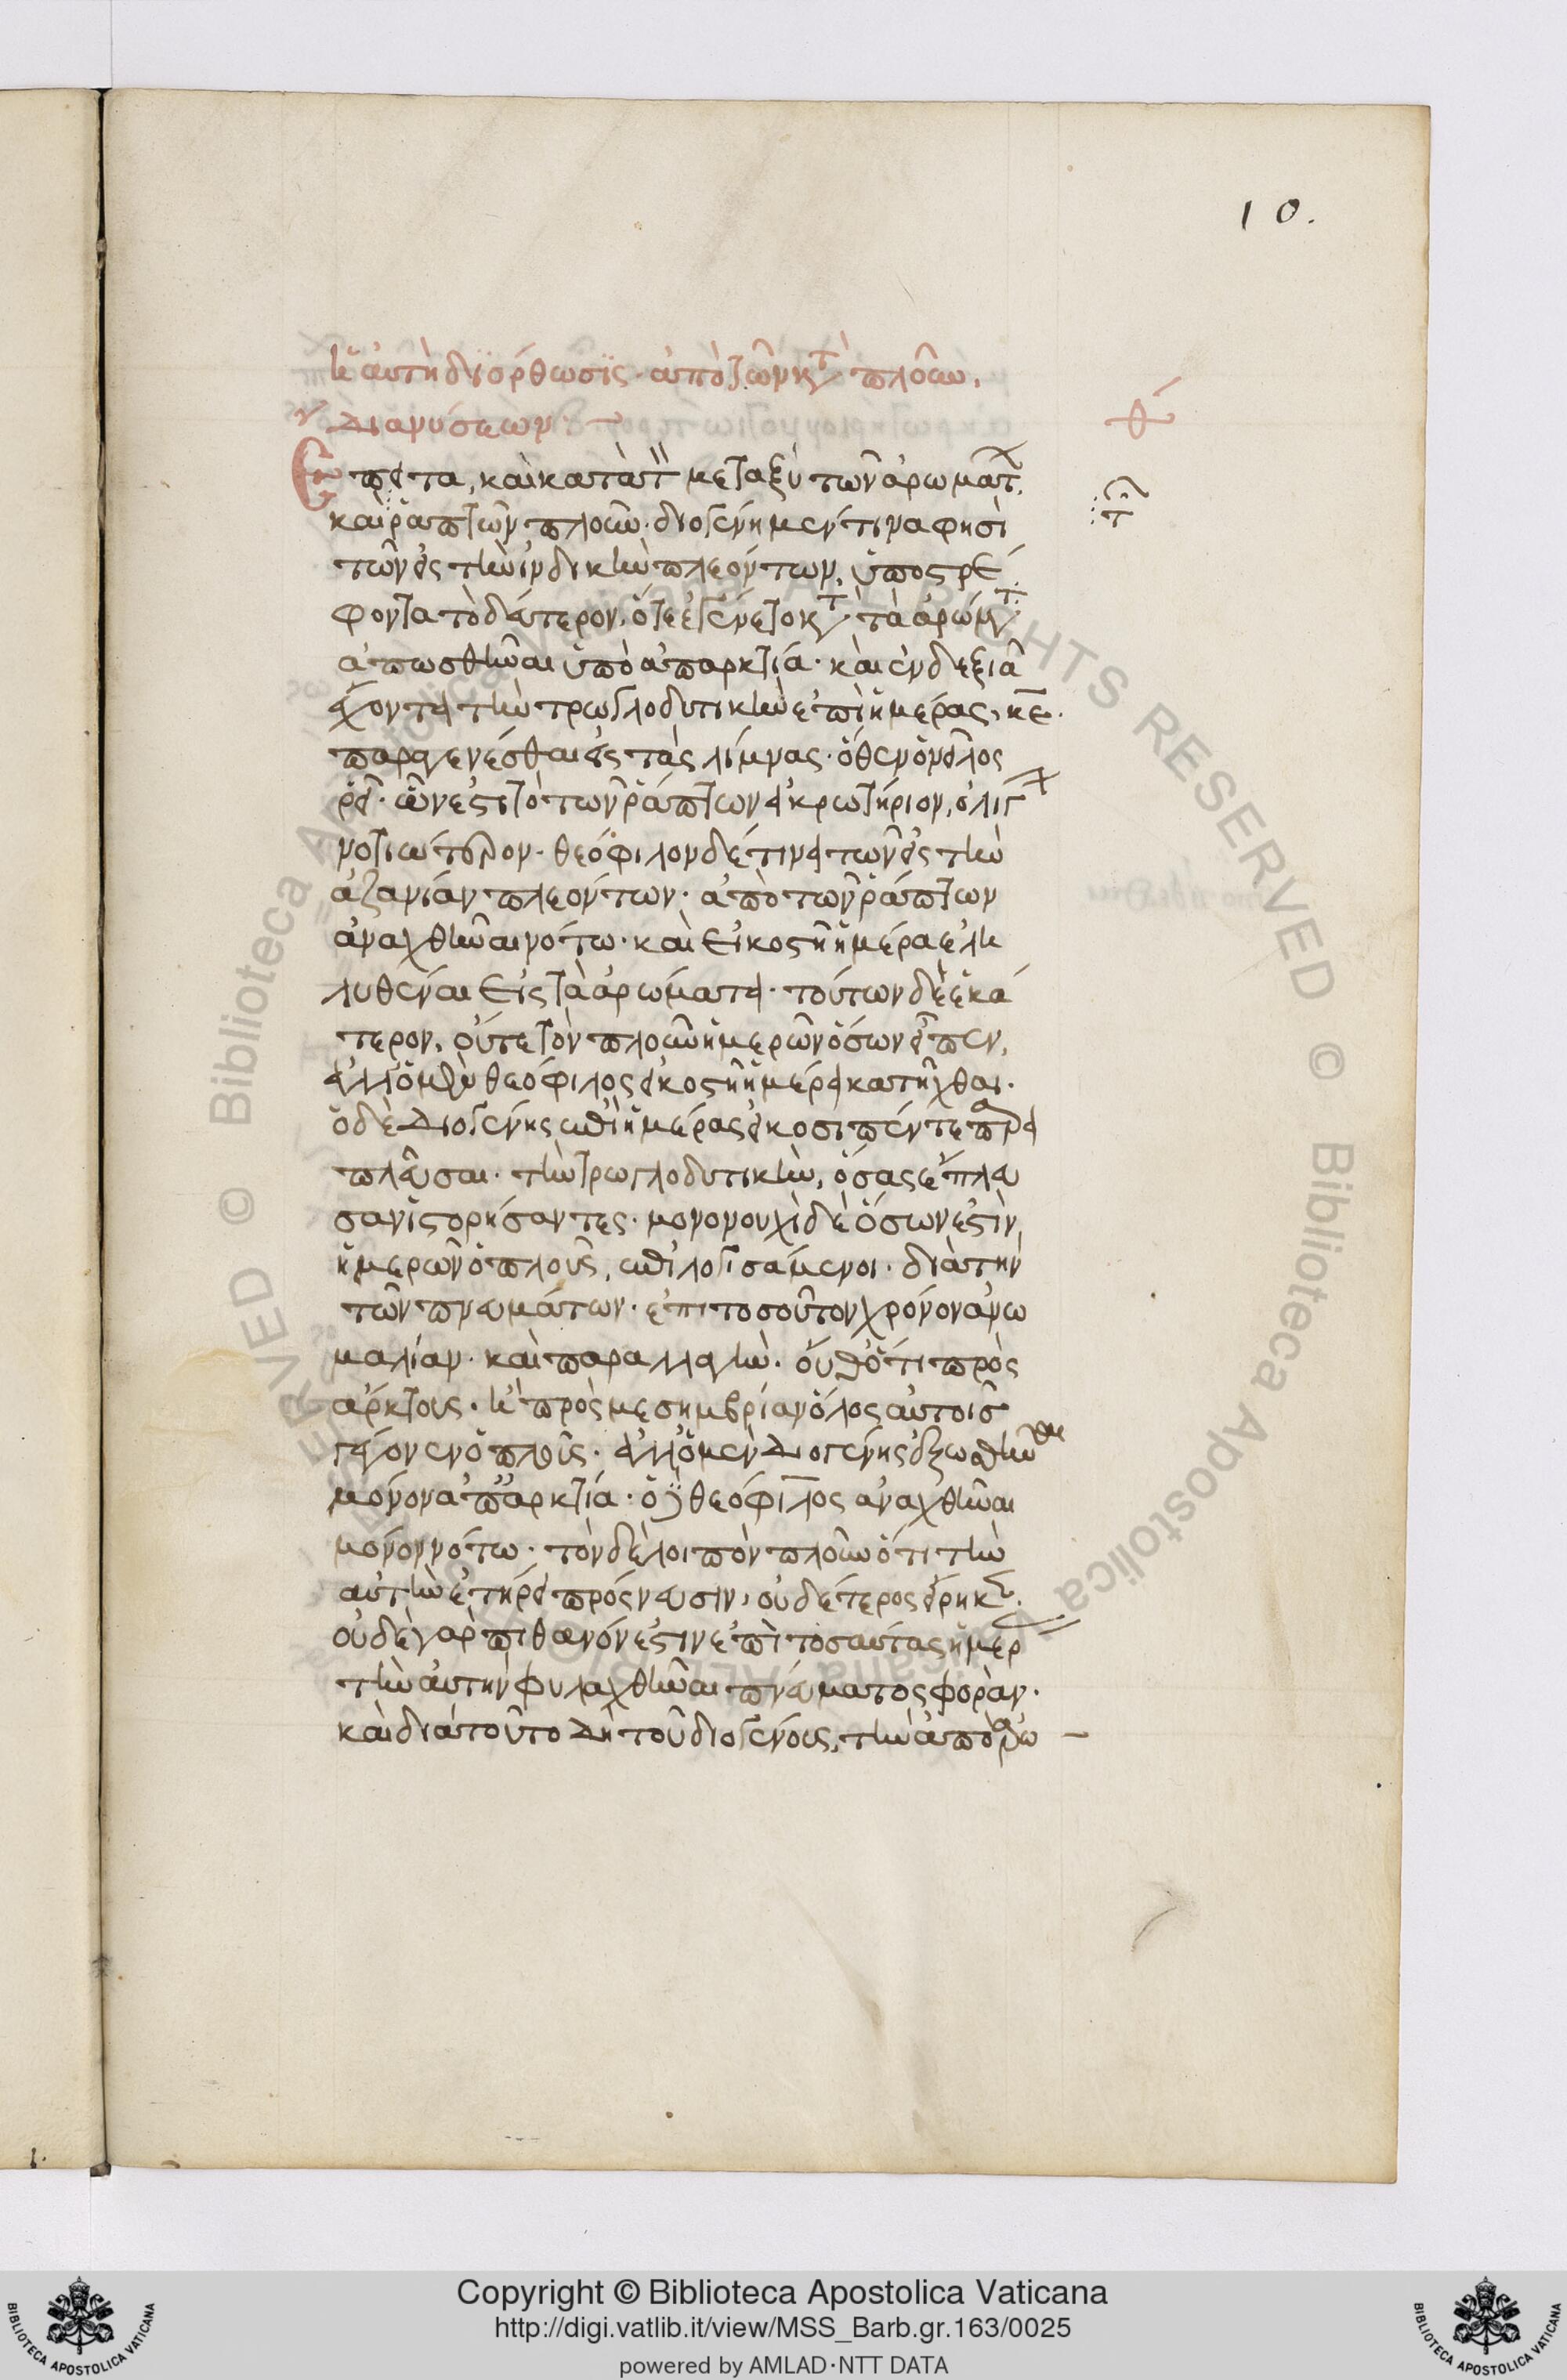 10.
ἡ αὐτὴ διόρθωσις ἀπὸ τῶν κατὰ πλοῦν
διανύσεων
θ
Ἔπειτα, καὶ κατὰ τὸν μεταξὺ τῶν ἀρωμάτ
καὶ ῥαπτῶν πλοῦν· διογένη μέν τινα φησὶ
τῶν εἰς τὴν ἰνδικὴν πλεόντων, ὑποστρέ
φοντα τὸ δεύτερον, ὅτε ἐγένετο κατὰ τὰ ἀρώμτ
ἀπωσθῆναι ὑπὸ ἀπαρκτία· καὶ ἐν δεξιᾶ
ἔχοντα τὴν τρωγλοδυτικὴν ἐπὶ ἡμέρας, κε·
παραγενέσθαι εἰς τὰς λίμνας· ὅθεν ὁ νεῖλος
ῥεῖ· ὧν ἐστὶ τὸ τῶν ῥάπτων ἀκρωτήριον, ὀλίγ
νοτιώτερον· θεόφιλον δέ τινα τῶν εἰς τὴν
ἀζανίαν πλεόντων· ἀπὸ τῶν ῥάπτων
ἀναχθῆναι νότω· καὶ εἰκοστῆ ἡμέρα ἐλη
λυθέναι εἰς τὰ ἀρώματα· τούτων δὲ ἑκά
τερον, οὔτε τὸν πλοῦν ἡμερῶν ὅσων εἶπεν,
ἀλλ' ὁ μὲν θεόφιλος εἰκοστῆ ἡμέρα κατῆχθαι·
ὁ δὲ Διογένης ἐπὶ ἡμέρας εἰκοσιπέντε παρα
πλεῦσαι· τὴν τρωγλοδυτικὴν, ὅσας ἔπλευ
σαν ἱστορήσαντες· μονονουχὶ δὲ ὅσων ἐστὶν
ἡμερῶν ὁ πλοῦς, ἐπιλογισάμενοι· διὰ τὴν
τῶν πνευμάτων· ἐπὶ τοσοῦτον χρόνον ἀνω
μαλίαν· καὶ παραλλαγὴν· οὔθ' ὅτι πρὸς
ἄρκτους· ἢ πρὸς μεσημβρίαν ὅλος αὐτοῖς
γέγονεν ὁ πλοῦς· ἀλλ' ὁ μὲν Διογένης ἐξωσθῆναι
μόνον ἀπαρκτία· ὁ δὲ θεόφιλος ἀναχθῆναι
μόνον νότω· τὸν δὲ λοιπὸν πλοῦν ὅτι τὴν
αὐτὴν ἐτήρει πρόσνευσιν, οὐδέτερος εἴρηκεν·
οὐδὲ γὰρ πιθανόν ἐστιν ἐπὶ τοσαύτας ἡμέρ
τὴν αὐτὴν φυλαχθῆναι πνεύματος φοράν·
καὶ διὰ τοῦτο Δὴ τοῦ διογένους, τὴν ἀπὸ ἀρω
Copyright © Biblioteca Apostolica Vaticana
http://digi.vatlib.it/view/MSS_Barb.gr.163/0025
powered by AMLAD·NTT DATA
BIBLIOTECA APOSTOLICA VATICANA
BIBLIOTECA APOSTOLICA VATICANA